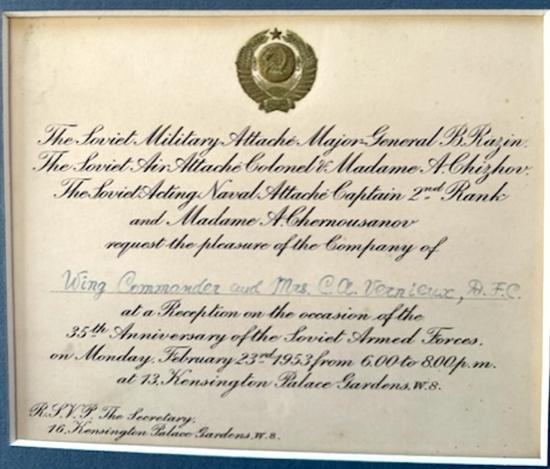 The Soviet Military Attaché Major-General B. Razin.
The Soviet Air Attaché Colonel & Madame A. Chizhov.
The Soviet Acting Naval Attaché Captain 2nd Rank
and Madame A. Chernousanov
request the pleasure of the Company of
Wing Commander and Mrs. C.A. Vernieux, D.F.C.
at a Reception on the occasion of the
35th Anniversary of the Soviet Armed Forces.
on Monday, February 23rd 1953 from 6.00 to 8.00 p.m.
at 13, Kensington Palace Gardens, W.8.
R.S.V.P. The Secretary,
16, Kensington Palace Gardens, W.8.